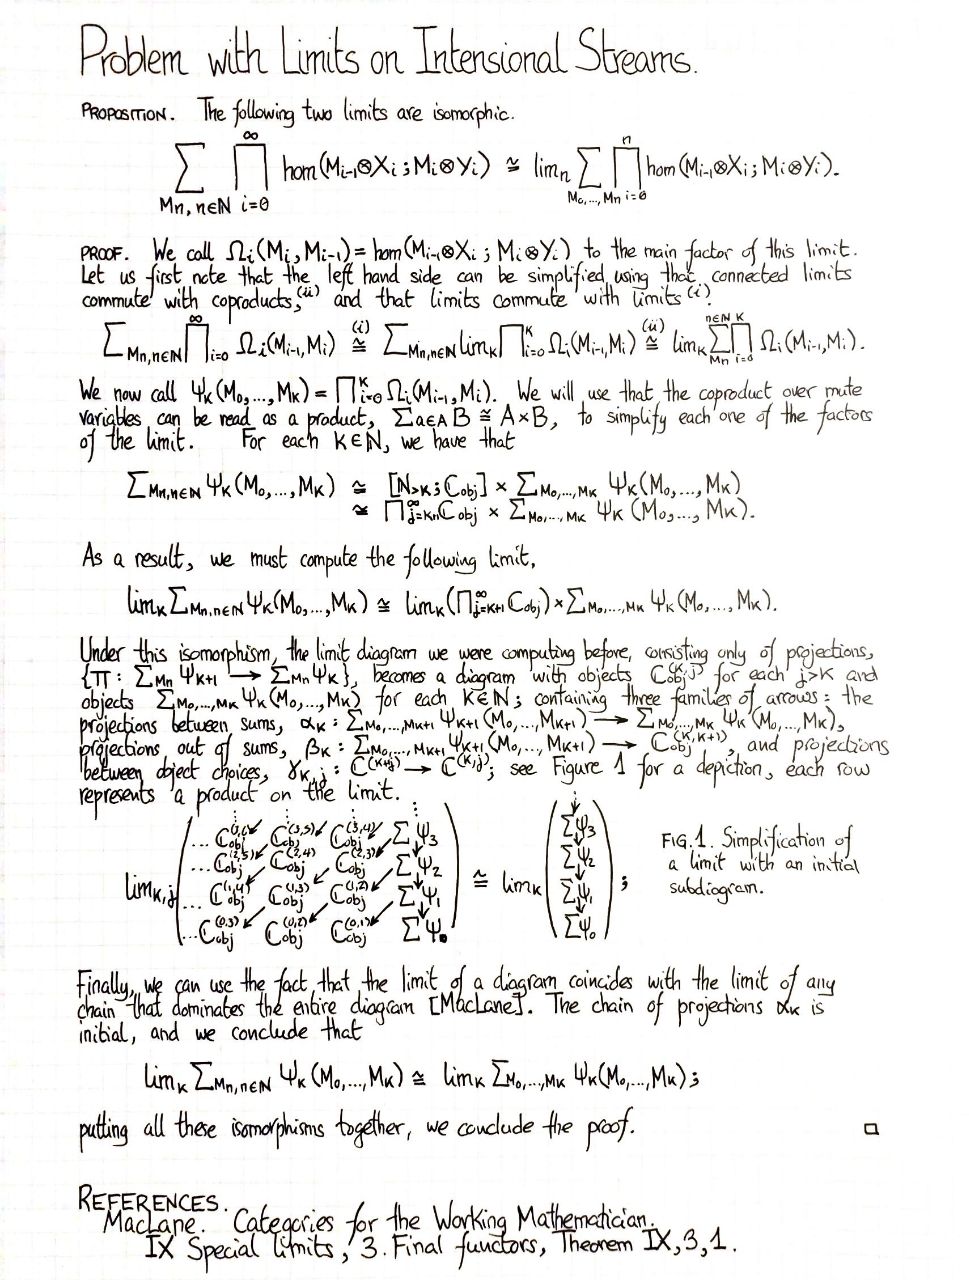 Problem with Limits on Intensional Streams.
PROPOSITION. The following two limits are isomorphic.
∑_{Mn, n∈ℕ} ∏_{i=0}^{∞} hom(M_{i-1}⊗X_i ; M_i⊗Y_i) ≅ lim_n ∑_{M_0,...,M_n} ∏_{i=0}^{n} hom(M_{i-1}⊗X_i ; M_i⊗Y_i).
PROOF. We call Ω_i(M_i, M_{i-1}) = hom(M_{i-1}⊗X_i ; M_i⊗Y_i) to the main factor of this limit.
Let us first note that the left hand side can be simplified using that connected limits
commute with coproducts,(ii) and that limits commute with limits(i).
∑_{Mn,n∈ℕ} ∏_{i=0}^{∞} Ω_i(M_{i-1},M_i) ≅(i) ∑_{Mn,n∈ℕ} lim_K ∏_{i=0}^{K} Ω_i(M_{i-1},M_i) ≅(ii) lim_K ∑_{Mn}^{n∈ℕ} ∏_{i=0}^{K} Ω_i(M_{i-1},M_i).
We now call Ψ_K(M_0,...,M_K) = ∏_{i=0}^{K} Ω_i(M_{i-1},M_i). We will use that the coproduct over mute
variables can be read as a product, ∑_{a∈A} B ≅ A×B, to simplify each one of the factors
of the limit. For each K∈ℕ, we have that
∑_{Mn,n∈ℕ} Ψ_K(M_0,...,M_K) ≅ [ℕ_{>K} ; ℂ_obj] × ∑_{M_0,...,M_K} Ψ_K(M_0,...,M_K)
≅ ∏_{j=K+1}^{∞} ℂ_obj × ∑_{M_0,...,M_K} Ψ_K(M_0,...,M_K).
As a result, we must compute the following limit,
lim_K ∑_{Mn,n∈ℕ} Ψ_K(M_0,...,M_K) ≅ lim_K (∏_{j=K+1}^{∞} ℂ_obj) × ∑_{M_0,...,M_K} Ψ_K(M_0,...,M_K).
Under this isomorphism, the limit diagram we were computing before, consisting only of projections,
{π : ∑_{Mn} Ψ_{K+1} → ∑_{Mn} Ψ_K}, becomes a diagram with objects ℂ_obj^{(K,j)} for each j>K and
objects ∑_{M_0,...,M_K} Ψ_K(M_0,...,M_K) for each K∈ℕ; containing three families of arrows: the
projections between sums, α_K : ∑_{M_0,...,M_{K+1}} Ψ_{K+1}(M_0,...,M_{K+1}) → ∑_{M_0,...,M_K} Ψ_K(M_0,...,M_K),
projections out of sums, β_K : ∑_{M_0,...,M_{K+1}} Ψ_{K+1}(M_0,...,M_{K+1}) → ℂ_obj^{(K,K+1)}, and projections
between object choices, γ_{K,j} : ℂ^{(K+1,j)} → ℂ^{(K,j)}; see Figure 1 for a depiction, each row
represents a product on the limit.
... ℂ_obj^{(3,6)} ℂ_obj^{(3,5)} ℂ_obj^{(3,4)} ∑Ψ_3
... ℂ_obj^{(2,5)} ℂ_obj^{(2,4)} ℂ_obj^{(2,3)} ∑Ψ_2
lim_{K,j} ... ℂ_obj^{(1,4)} ℂ_obj^{(1,3)} ℂ_obj^{(1,2)} ∑Ψ_1
... ℂ_obj^{(0,3)} ℂ_obj^{(0,2)} ℂ_obj^{(0,1)} ∑Ψ_0
≅ lim_K
∑Ψ_3
∑Ψ_2
∑Ψ_1
∑Ψ_0
;
FIG.1. Simplification of
a limit with an initial
subdiagram.
Finally, we can use the fact that the limit of a diagram coincides with the limit of any
chain that dominates the entire diagram [MacLane]. The chain of projections α_K is
initial, and we conclude that
lim_K ∑_{Mn,n∈ℕ} Ψ_K(M_0,...,M_K) ≅ lim_K ∑_{M_0,...,M_K} Ψ_K(M_0,...,M_K);
putting all these isomorphisms together, we conclude the proof. □
REFERENCES.
MacLane. Categories for the Working Mathematician.
IX Special limits, 3. Final functors, Theorem IX,3,1.